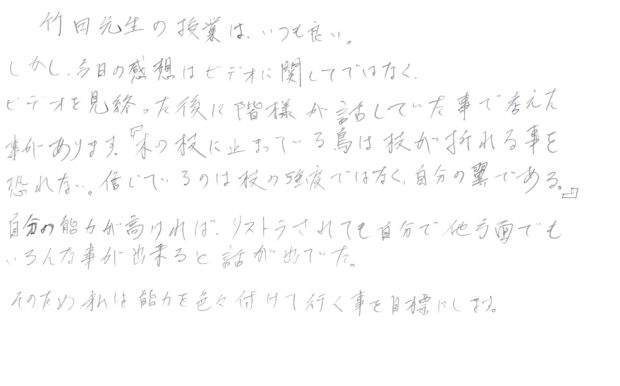 竹田先生の授業は、いつも良い。
しかし、今日の感想はビデオに関してではなく、
ビデオを見終った後に階様が話していた事で考えた
事があります。「木の枝に止まっている鳥は枝が折れる事を
恐れない。信じているのは枝の強度ではなく、自分の翼である。」
自分の能力が高ければ、リストラされても自分で他方面でも
いろんな事が出来ると話が出ていた。
そのため私は能力を色々付けて行く事を目標にします。